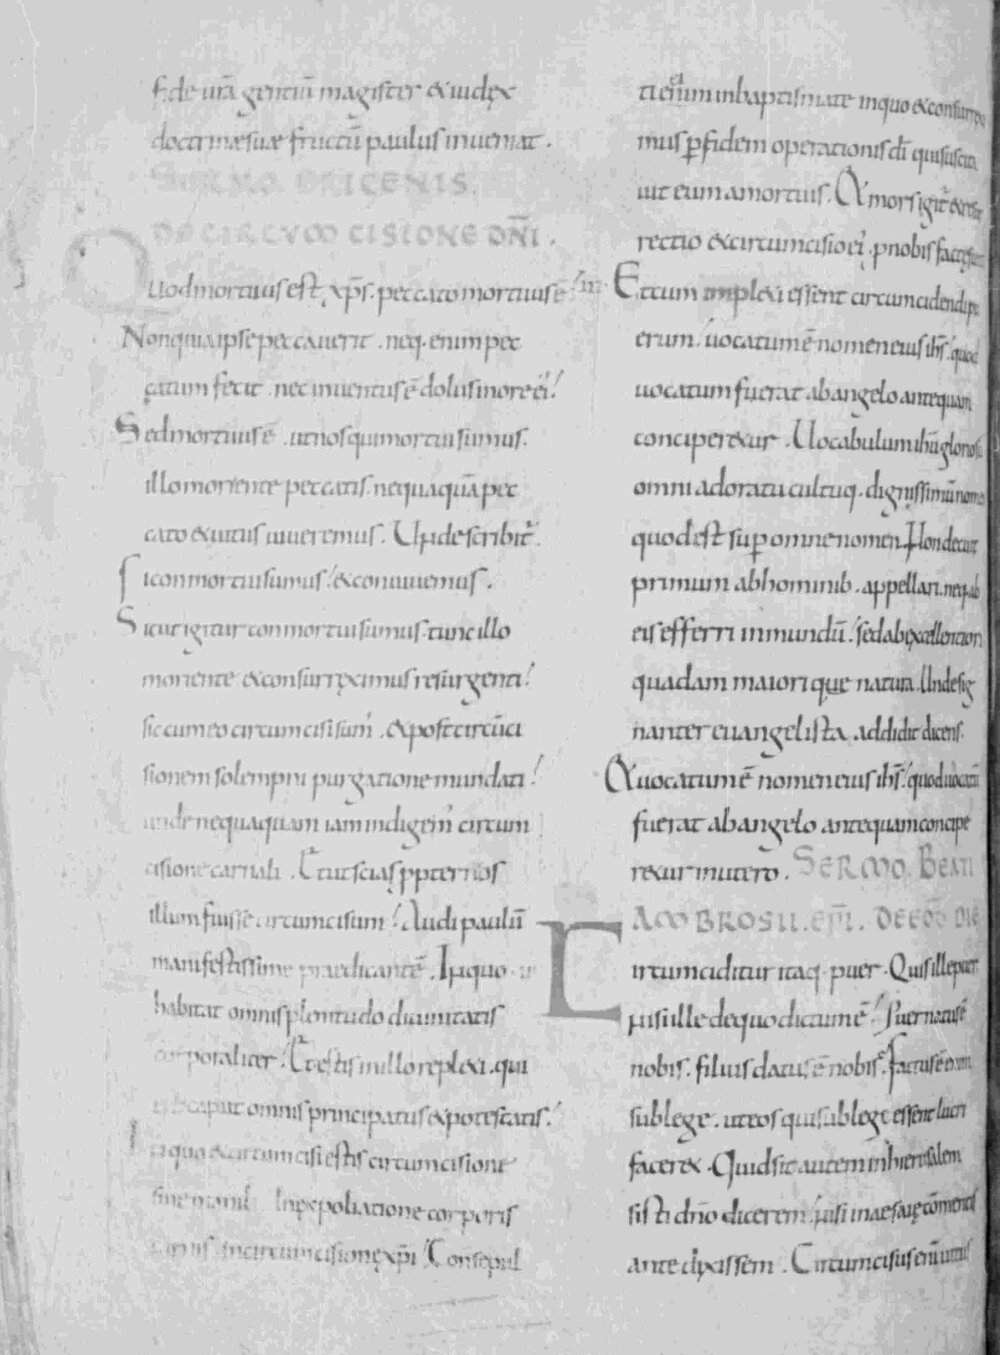 Fide ur̄a gentiū magister & iudex
doctrinæ suæ fructū paulus inueniat.
SERMO ORIGENIS.
DE CIRCVMCISIONE DN̄I.
Quod mortuus est xp̄s. peccato mortuus ē!
Non quia ipse peccauerit. neq. enim pec
catum fecit nec inuentus ē dolus in ore ei'!
Sed mortuus ē. ut nos qui mortui sumus.
illo moriente peccatis. nequaquā pec
cato exutus uiueremus. Un̄ & scribit̄.
Si conmortui sumus! & conuiuemus.
Sicut igitur conmortui sumus. tunc illo
moriente & consurreximus resurgenti!
sic cum eo circumcisi sum'. & post circūci
sionem solempni purgatione mundati!
unde nequaquam iam indigem' circum
cisione carnali. Et ut scias ꝓpter nos
illum fuisse circumcisum! Audi paulū
manifestissime praedicantē. In quo
habitat omnis plenitudo diuinitatis
corporaliter! Et estis in illo repleti. qui
est caput omnis principatus & potestatis!
In quo & circumcisi estis circumcisione
sine manib. In expoliatione corporis
carnis. in circumcisione xp̄i! Consepul
ti ei in baptismate in quo & consurrexi
mus ꝑ fidem operationis dī qui suscita
uit eum a mortuis. & mors igit̄ & resur
rectio & circumcisio ei'. ꝓ nobis facte sunt
Et cum impleti essent circumcidendi pu
erum! uocatum ē nomen eius ih̄s! quod
uocatum fuerat ab angelo antequam
conciperetur. Uocabulum ih̄u gloriosū
omni adoratu cultuq. dignissimū nomen
quod est sup omne nomen. Non decuit
primum ab hominib. appellari. neq. ab
eis efferri in mundū! sed ab excellentiori
quadam maiorique natura. Unde sig
nanter euangelista addidit dicens.
& uocatum ē nomen eius ih̄s! quod uocatū
fuerat ab angelo antequam concipe
retur in utero. SERMO BEATI
AMBROSII. EPĪ. DE EOD DIE
Circumciditur itaq. puer. Quis ille puer
nisi ille de quo dictum ē! Puer natus ē
nobis. filius datus ē nobis. Factus ē enim
sub lege. ut eos qui sub lege essent lucri
facer&. Quid sit autem in hierusalem
sisti dn̄o dicerem! nisi in aesaię cōmentis
ante dixissem. Circumcisus enī uitiis